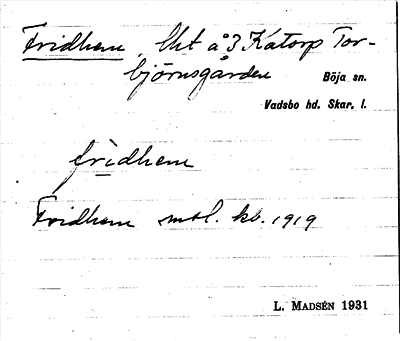 Fridhem, lht å 3 Katorp Tor-
björnsgården Böja sn.
Vadsbo hd. Skar. l.
frìdhem
Fridhem mtl. kb. 1919
L. MADSÉN 1931